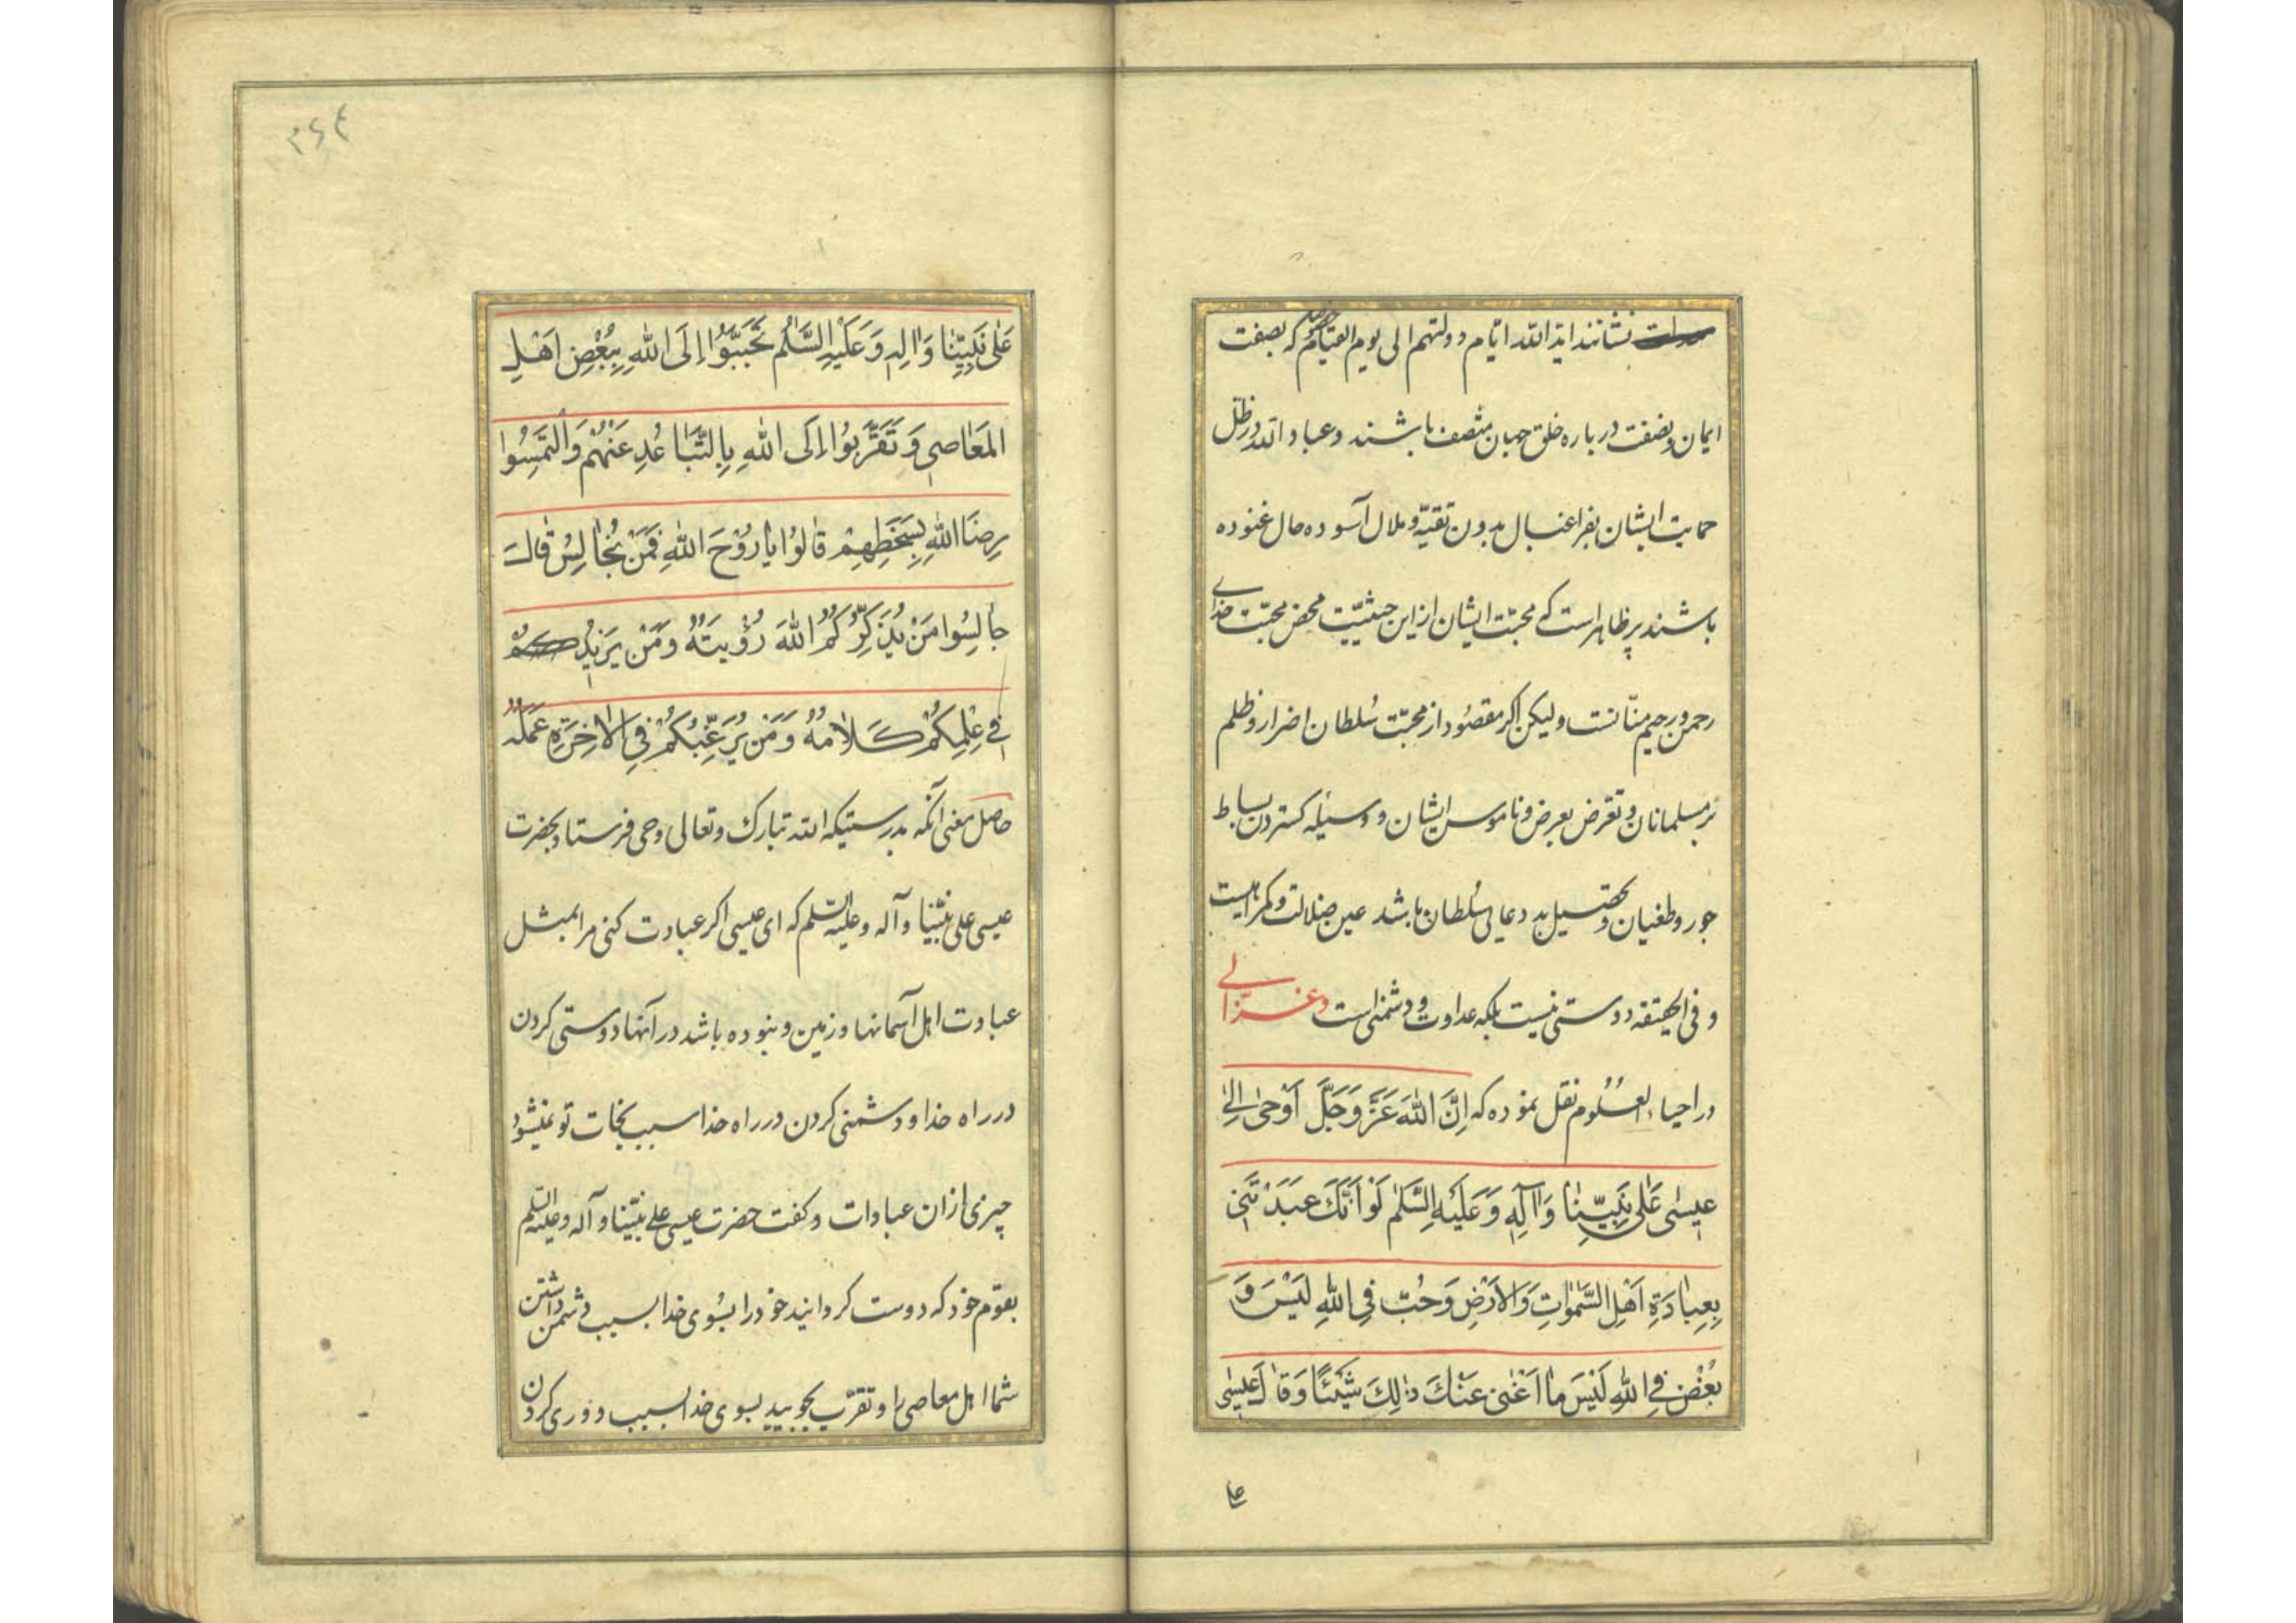 نشانند ابد الله ایام دولتهم الی یوم القیام که بصفت
ایمان و بصفت درباره خلق جهان متصف باشند و عباد الله در ظل
حمایت ایشان بفراغبال بدون تقیه و ملال آسوده حال غنوده
باشند پر ظاهر است که محبت ایشان از این حیثیت محض محبت خدای
رحمن و رحیم منانست و لیکن اکر مقصود از محبت سلطان اضرار و ظلم
بر مسلمانان و تعرض بعرض و ناموس ایشان و وسیله کستردن بساط
جور و طغیان و تحصیل بد دعایی سلطان باشد عین ضلالت و کمراهیست
و فی الحقیقه دوستی نیست بلکه عداوت و دشمنی است و غزالی
در احیاء العلوم نقل نموده که اِنَّ اللهَ عَزَّ وَجَلَّ اَوْحیٰ اِلیٰ
عیسٰی عَلیٰ نَبِیِّنٰا وَآلِهِ وَعَلَیْهِ السَّلٰم لَوْ اَنَّکَ عَبَدْتَنِی
بِعِبٰادَةِ اَهْلِ السَّمٰوٰاتِ وَالاَرْضِ وَحُبّ فِی اللهِ لَیْسَ وَ
بُغْض فِی اللهِ لَیْسَ مٰا اَغْنٰی عَنْكَ ذٰلِكَ شَیْئًا وَقٰالَ عیسٰی
عا
٣٦٤
عَلیٰ نَبِیِّنٰا وَاٰلِهِ وَعَلَیْهِ السَّلٰم تَحَبَّبُوا اِلَی اللهِ بِبُغْضِ اَهْلِ
المَعٰاصِی وَتَقَرَّبُوا اِلَی اللهِ بِالتَّبٰاعُدِ عَنْهُمْ وَالْتَمِسُوا
رِضَا اللهِ بِسَخَطِهِمْ قٰالُوا یٰا رُوْحَ اللهِ فَمَنْ نُجٰالِسُ قٰالَ
جٰالِسُوا مَنْ یُذَکِّرُکُمُ اللهَ رُؤْیَتَهُ وَمَنْ یَزِیدُ
فِی عِلْمِکُمْ کَلٰامُهُ وَمَنْ یُرَغِّبُکُمْ فِی الاٰخِرَةِ عَمَلُهُ
حاصل معنی آنکه بدرستیکه الله تبارک و تعالی وحی فرستاد بحضرت
عیسی علی نبینا و آله و علیه السلم که ای عیسی اکر عبادت کنی مرا بمثل
عبادت اهل آسمانها و زمین و نبوده باشد در آنها دوستی کردن
در راه خدا و دشمنی کردن در راه خدا سبب نجات تو نمیشود
چیزی از ان عبادات و کفت حضرت عیسی علی نبینا و آله و علیه السلم
بقوم خود که دوست کردانید خود را بسوی خدا بسبب دشمن داشتن
شما اهل معاصی را و تقرب بجویید بسوی خدا بسبب دوری کردن